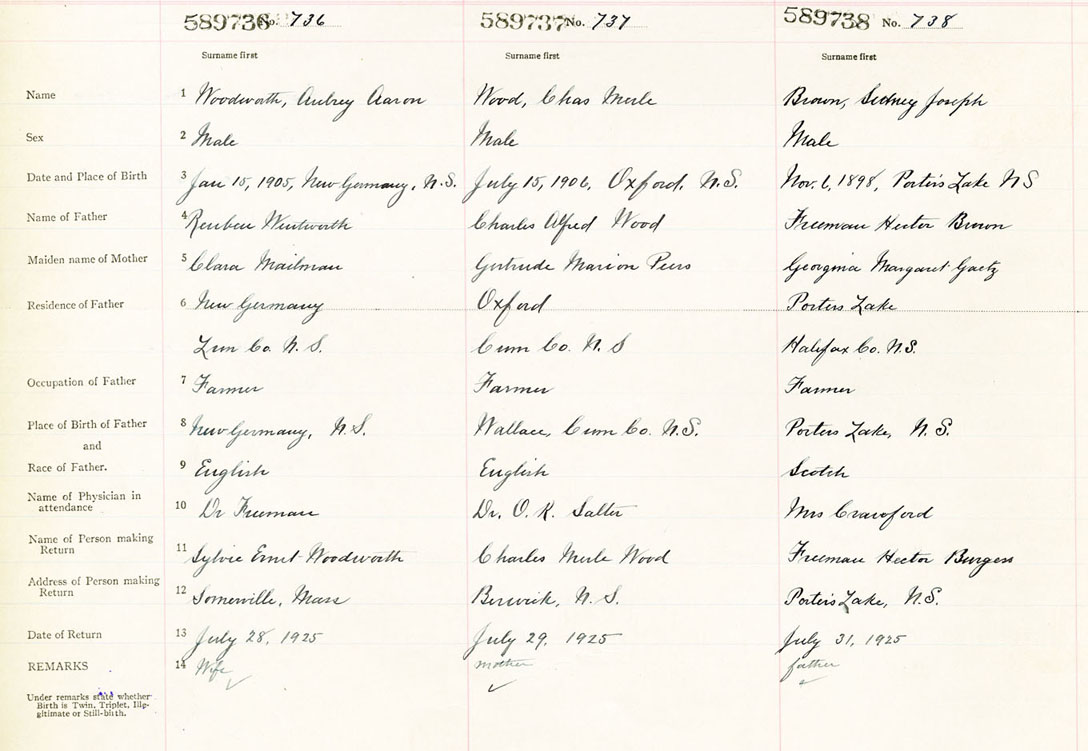 589736 No. 736 589737 No. 737 589738 No. 738
Surname first Surname first Surname first
Name 1 Woodworth, Aubrey Aaron Wood, Chas Merle Brown, Sidney Joseph
Sex 2 Male Male Male
Date and Place of Birth 3 Jan 15, 1905, New Germany, N.S. July 15, 1906, Oxford, N.S. Nov. 6, 1898, Porters Lake NS
Name of Father 4 Reuben Wentworth Charles Alfred Wood Freeman Hector Brown
Maiden name of Mother 5 Clara Mailman Gertrude Marion Peers Georgina Margaret Gaetz
Residence of Father 6 New Germany Oxford Porters Lake
Lun Co. N.S. Cum Co. N.S Halifax Co. N.S.
Occupation of Father 7 Farmer Farmer Farmer
Place of Birth of Father 8 New Germany, N.S. Wallace, Cum Co. N.S. Porters Lake, N.S.
and
Race of Father. 9 English English Scotch
Name of Physician in
attendance 10 Dr Freeman Dr. O. K. Salter Mrs Crawford
Name of Person making
Return 11 Sylvie Ernst Woodworth Charles Merle Wood Freeman Hector Burgess
Address of Person making
Return 12 Somerville, Mass Berwick, N.S. Porters Lake, N.S.
Date of Return 13 July 28, 1925 July 29, 1925 July 31, 1925
REMARKS 14 Wife mother father
Under remarks state whether
Birth is Twin, Triplet, Ille-
gitimate or Still-birth.